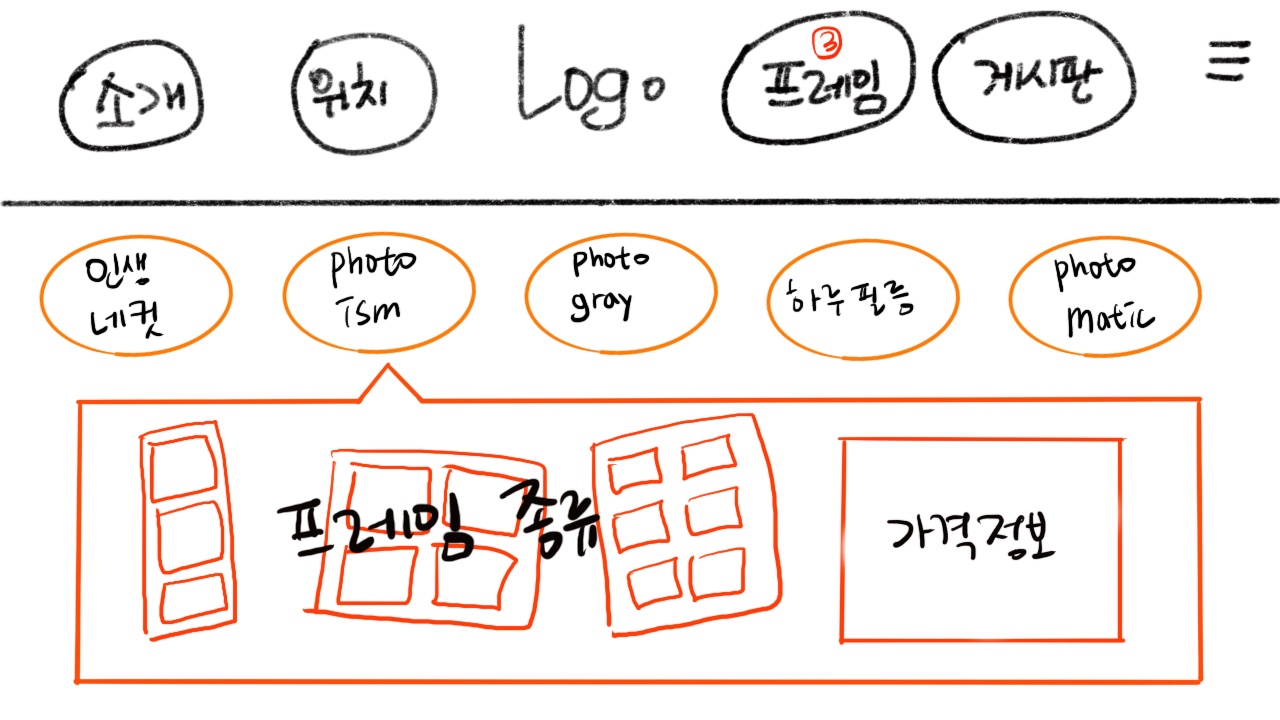 소개
위치
Logo
③
프레임
게시판
인생
네컷
photo
ism
photo
gray
하루필름
photo
matic
프레임 종류
가격정보